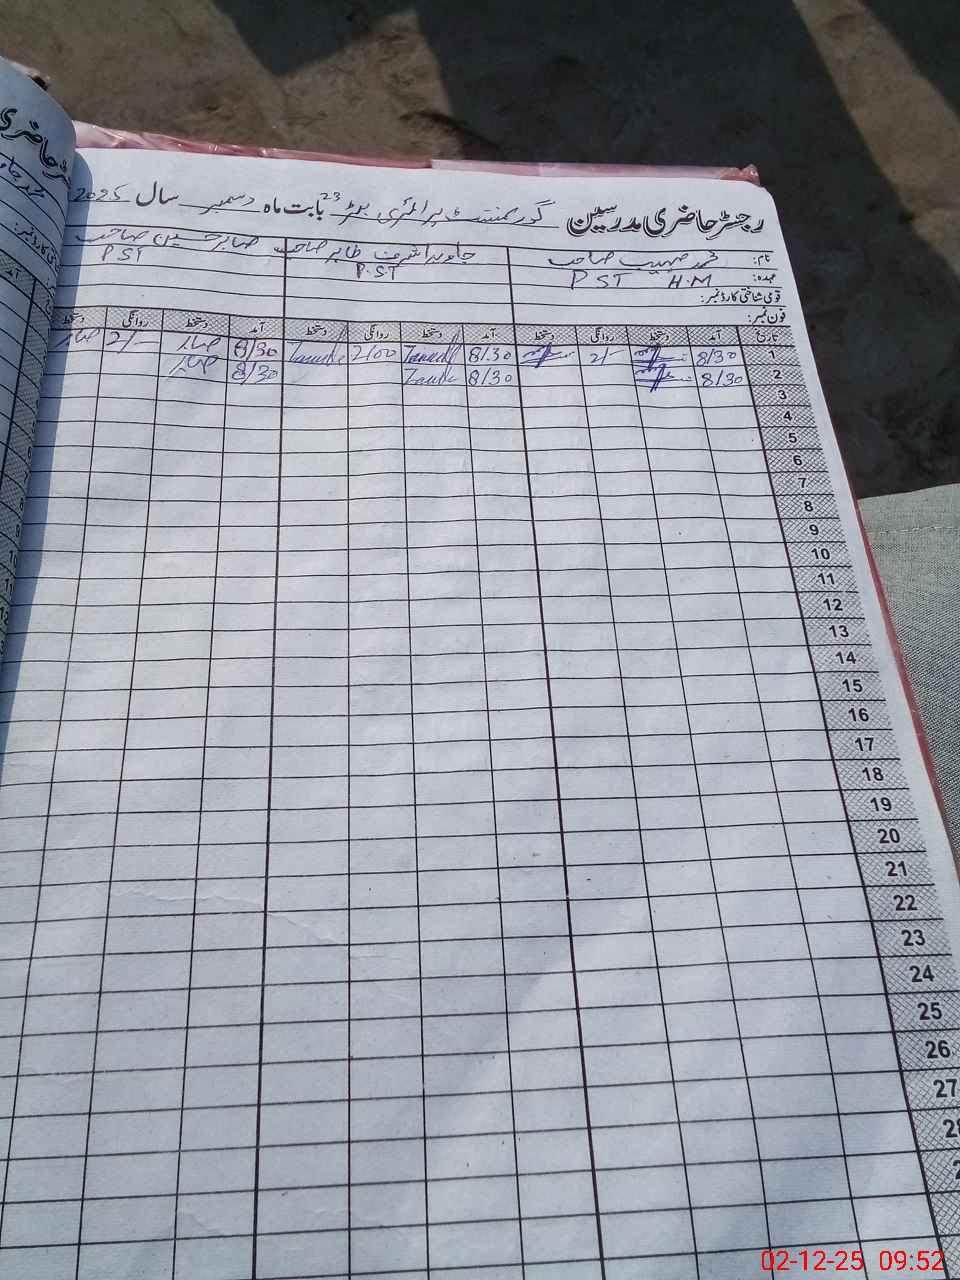 رجسٹر حاضری مدرسین گورنمنٹ پرائمری 23 بابت ماہ دسمبر سال 2025
نام: محمد صہیب صاحب جاوید اشرف طاہر صاحب صابر حسین صاحب
عہدہ: PST H.M P.ST PST
قومی شناختی کارڈ نمبر:
فون نمبر:
تاریخ آمد دستخط روانگی دستخط آمد دستخط روانگی دستخط آمد دستخط روانگی دستخط
1 8/30 2/- 8/30 2/00 8/30 صابر 2/- صابر
2 8/30 8/30 8/30 صابر
3
4
5
6
7
8
9
10
11
12
13
14
15
16
17
18
19
20
21
22
23
24
25
26
27
02-12-25 09:52